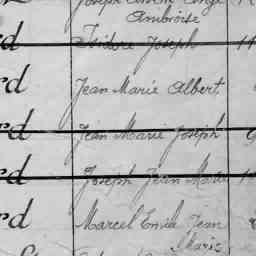 Ambroise
rd Isidore Joseph 11
rd Jean Marie Albert
rd Jean Marie Joseph 9
rd Joseph Jean Marie 1
rd Marcel Emile Jean
Marie